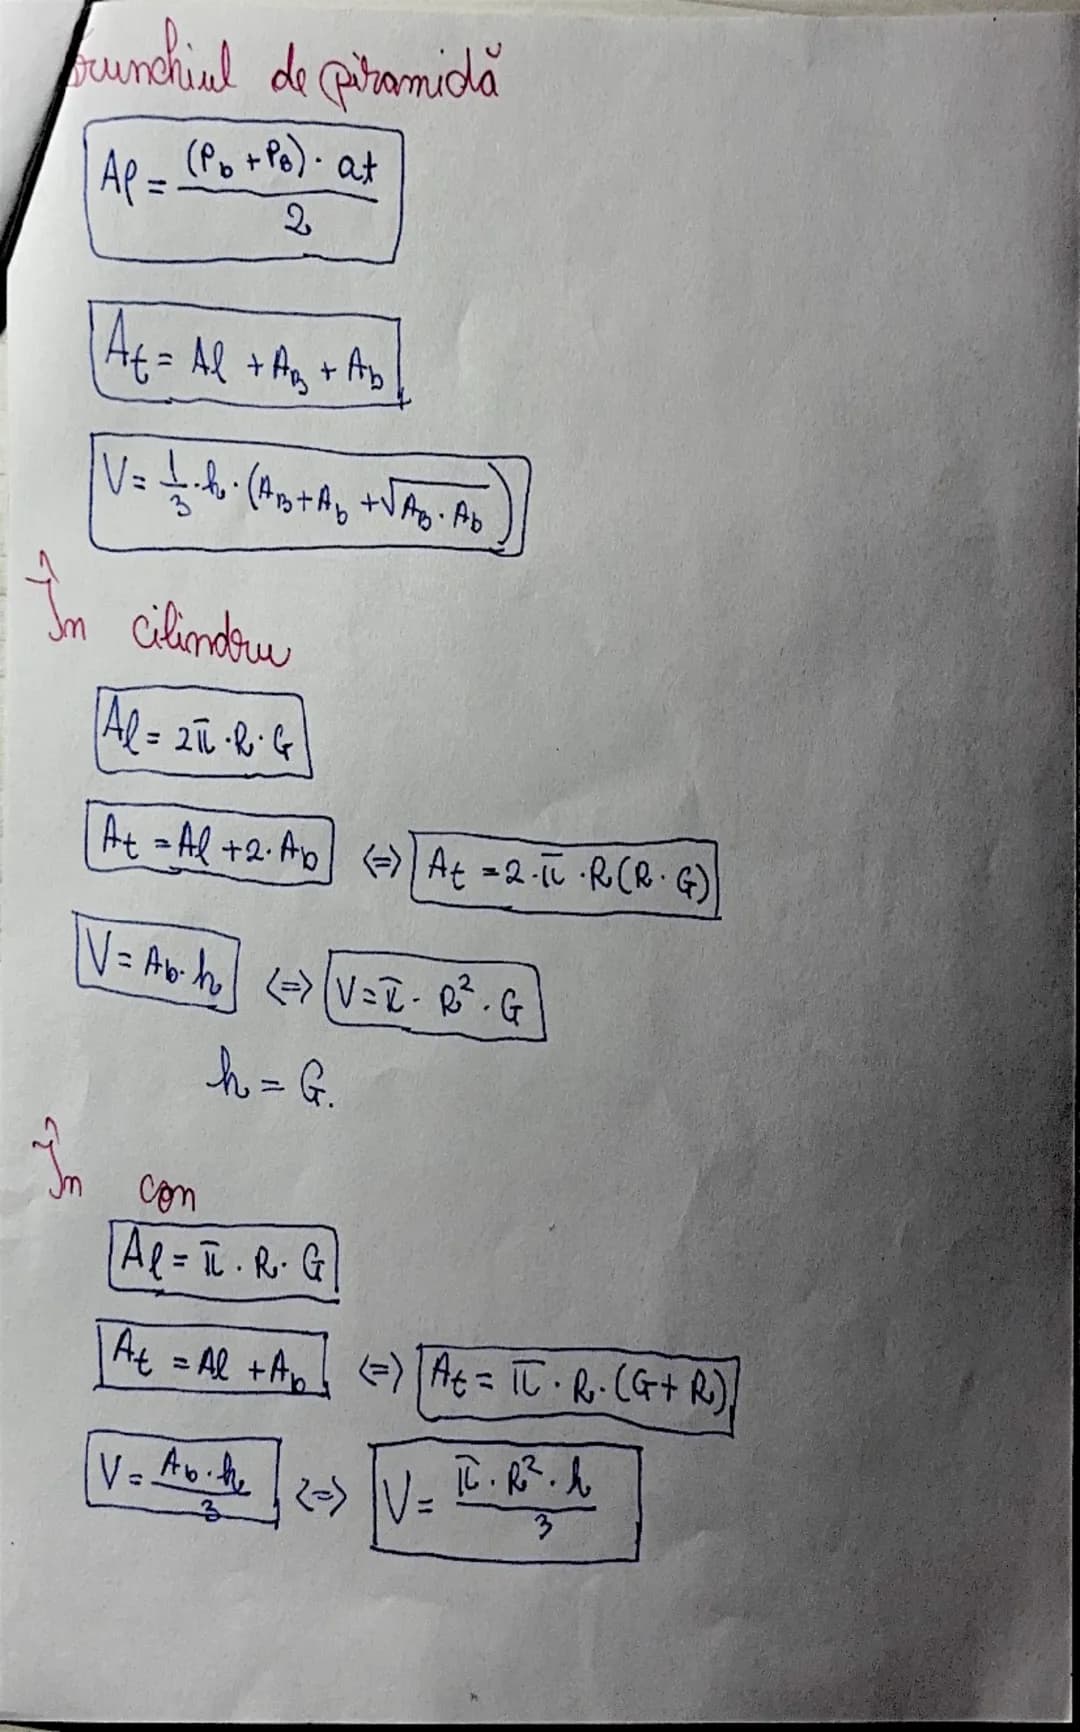 Trunchiul de piramidă
Al = (Pb + PB) · at / 2
At = Al + AB + Ab
V = 1/3 · h · (AB + Ab + √AB · Ab)
În cilindru
Al = 2π · R · G
At = Al + 2 · Ab <=> At = 2 · π · R (R · G)
V = Ab · h <=> V = π · R² · G
h = G.
În con
Al = π · R · G
At = Al + Ab <=> At = π · R · (G + R)
V = Ab · h / 3 <=> V = π · R² · h / 3